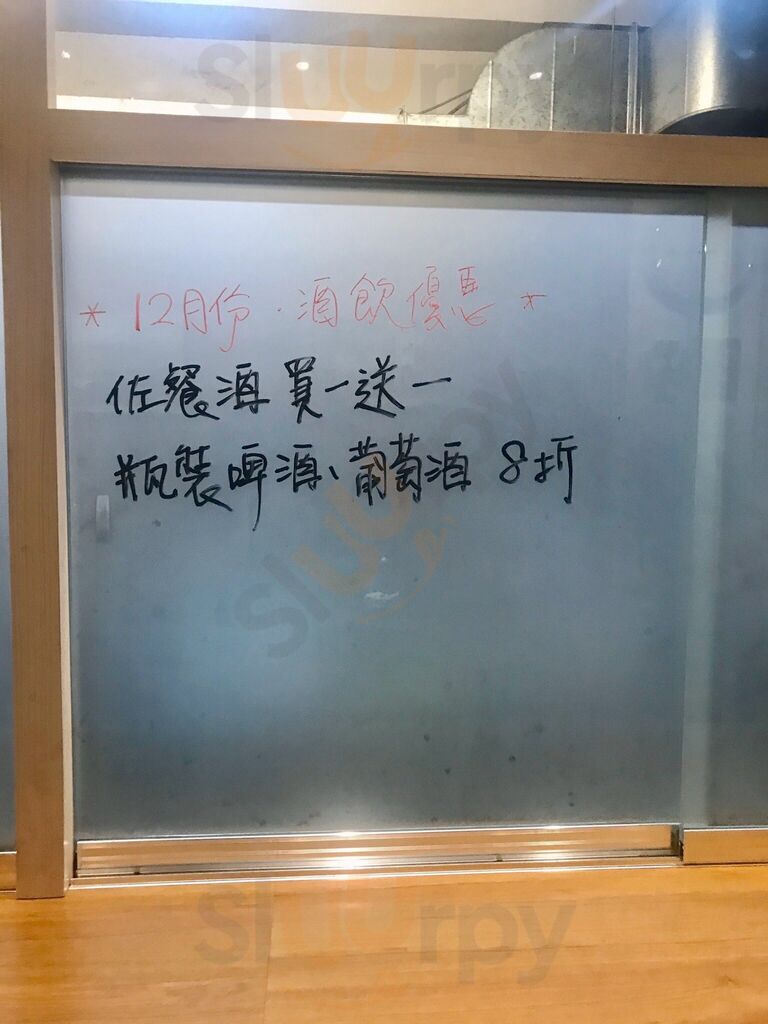 Sluurpy
* 12月份·酒飲優惠 *
佐餐酒 買一送一
瓶裝啤酒、葡萄酒 8折
Sluurpy
Sluurpy